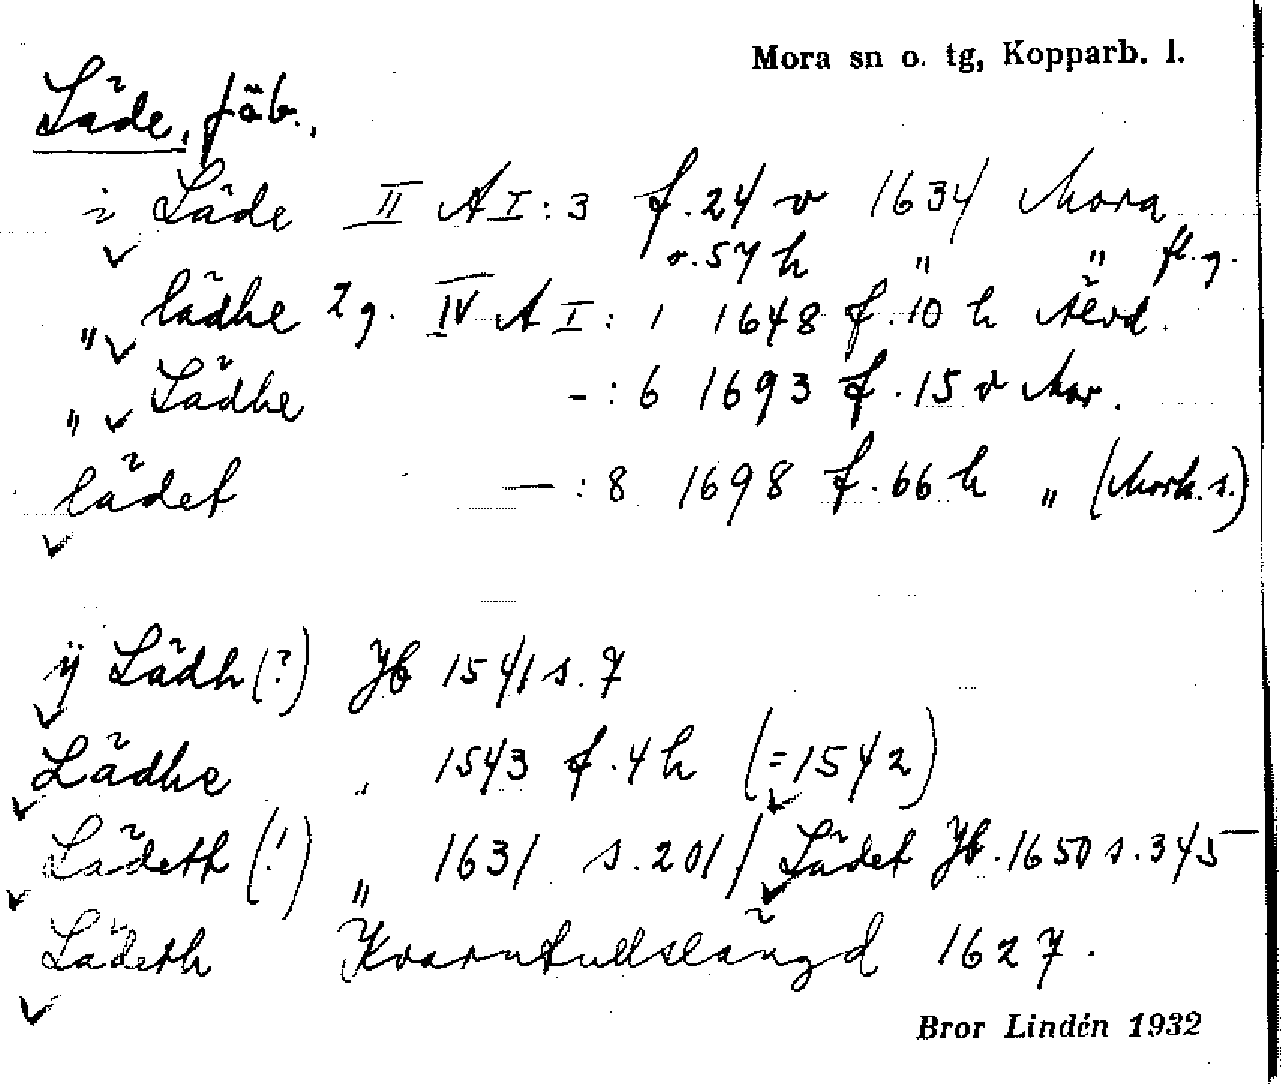 Mora sn o. tg, Kopparb. l.
Läde, fäb.,
i Läde II A I : 3 f. 24 v 1634 Mora
v. 57 h " " fl. g.
" lädhe 2 g. IV A I : 1 1648 f. 10 h Älvd.
" Lädhe - : 6 1693 f. 15 v Mor.
lädet — : 8 1698 f. 66 h " (Mork. s.)
ÿ Lädh (?) Jb 1541 s. 7
Lädhe " 1543 f. 4 h (=1542)
Lädeth (!) " 1631 s. 201 / Lädet Jb. 1650 s. 345
Lädeth Kvarntullslängd 1627.
Bror Lindén 1932